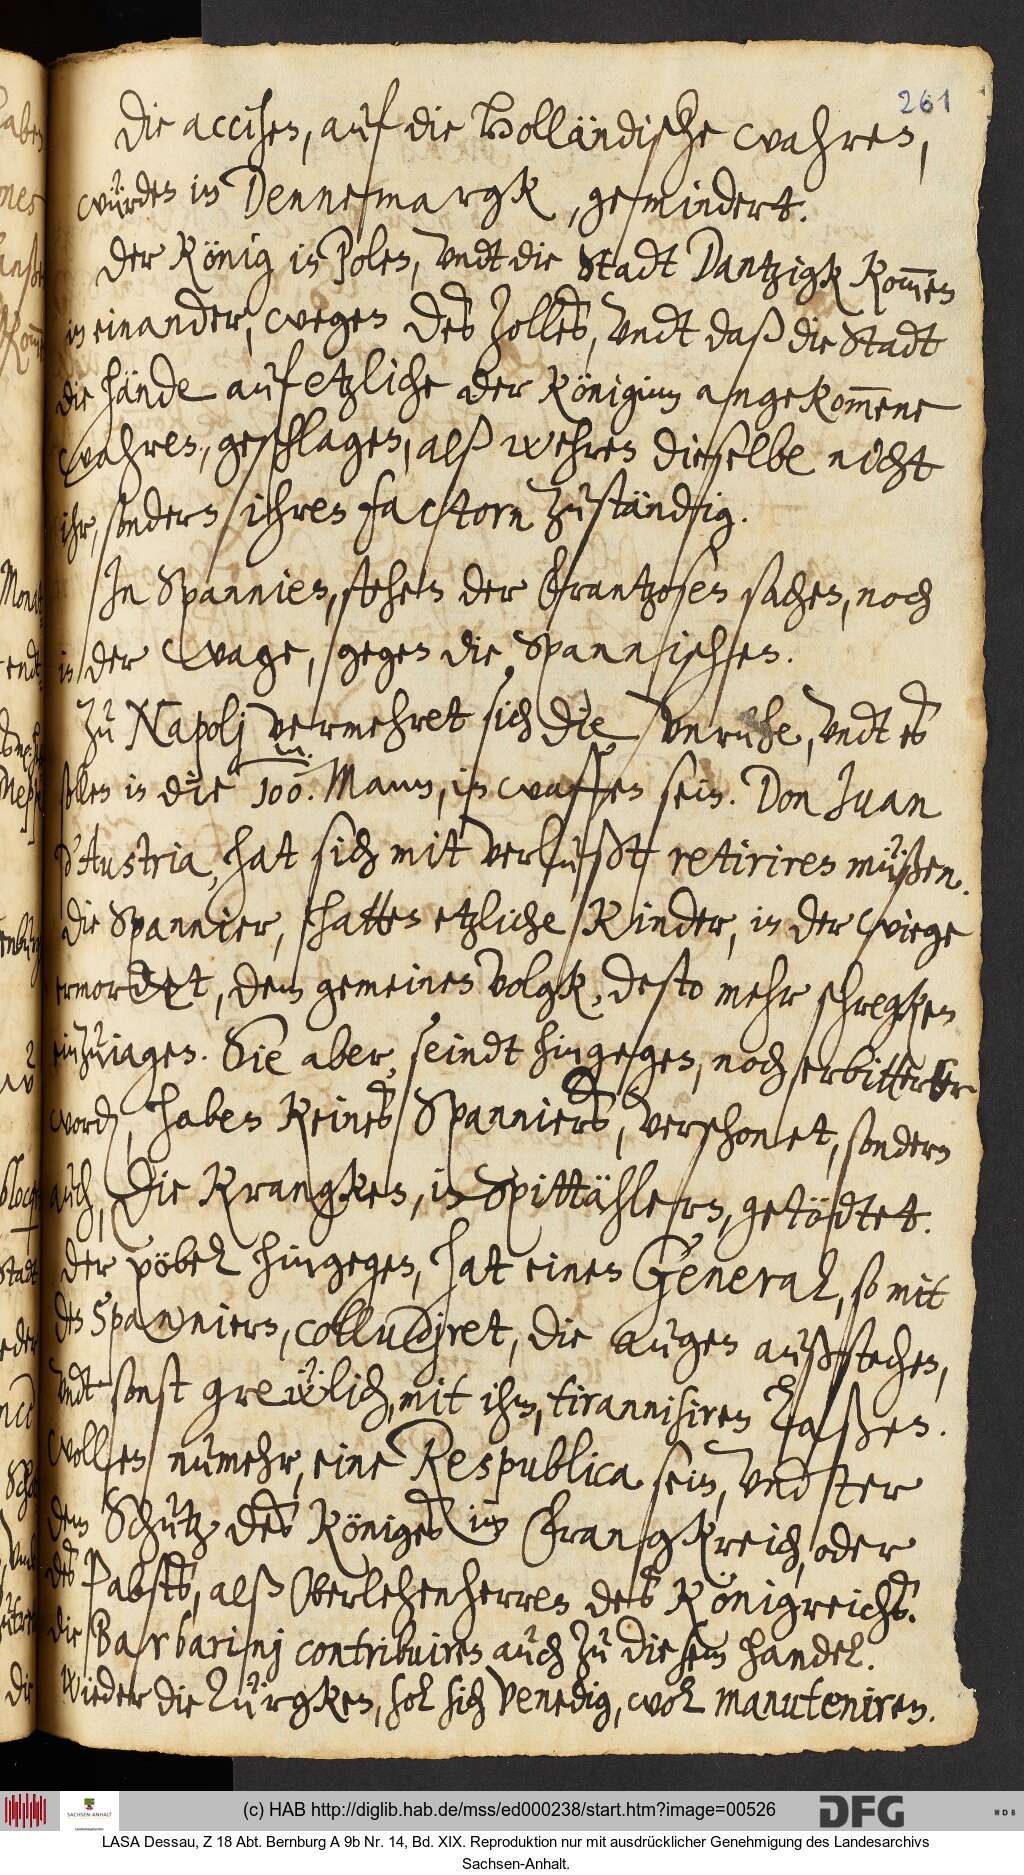 261
Die accisen, auf die Holländische wahren,
würden in Dennemargk, gemindert.
Der König in Polen, vndt die Stadt Dantzigk kom̄en
in einander, wegen des Zolles, vndt daß die Stadt
die hände auf etzliche der Königinn angekom̄ene
wahren, geschlagen, alß wehren dieselbe nicht
ihr, sondern ihren factorn zuständig.
In Spannien, stehen der Frantzosen sachen, noch
in der wage, gegen die Spannischen.
Zu Napolj vermehret sich die vnruhe, vndt es
sollen in die 100.m. Mann, in waffen sein. Don Juan
d'Austria, hat sich mit verlußt retiriren müßen.
Die Spannier, hatten etzliche Kinder, in der wiege
ermordet, dem gemeinen volgk, desto mehr schregken
einzuiagen. Sie aber, seindt hingegen, noch erbitterter
word, haben keines Spanniers, verschonet, sondern
auch, die Krangken, in Spittählern, getödtet.
Der pöbel hingegen, hat einen General, so mit
den Spanniern, colludjret, die augen außstechen,
vndt sonst grewlich, mit ihm, tirannisiren laßen.
wollen numehr, eine Respublica sein, vndter
dem Schutz des Königes in Frangkreich, oder
des Pabsts, alß Oberlehenherren des Königreichs.
die Barbarinj contribuiren auch zu diesem handel.
Wieder die Türgken, sol sich Venedig, wol manuteniren.
(c) HAB http://diglib.hab.de/mss/ed000238/start.htm?image=00526
SACHSEN-ANHALT
DFG
WDB
LASA Dessau, Z 18 Abt. Bernburg A 9b Nr. 14, Bd. XIX. Reproduktion nur mit ausdrücklicher Genehmigung des Landesarchivs
Sachsen-Anhalt.